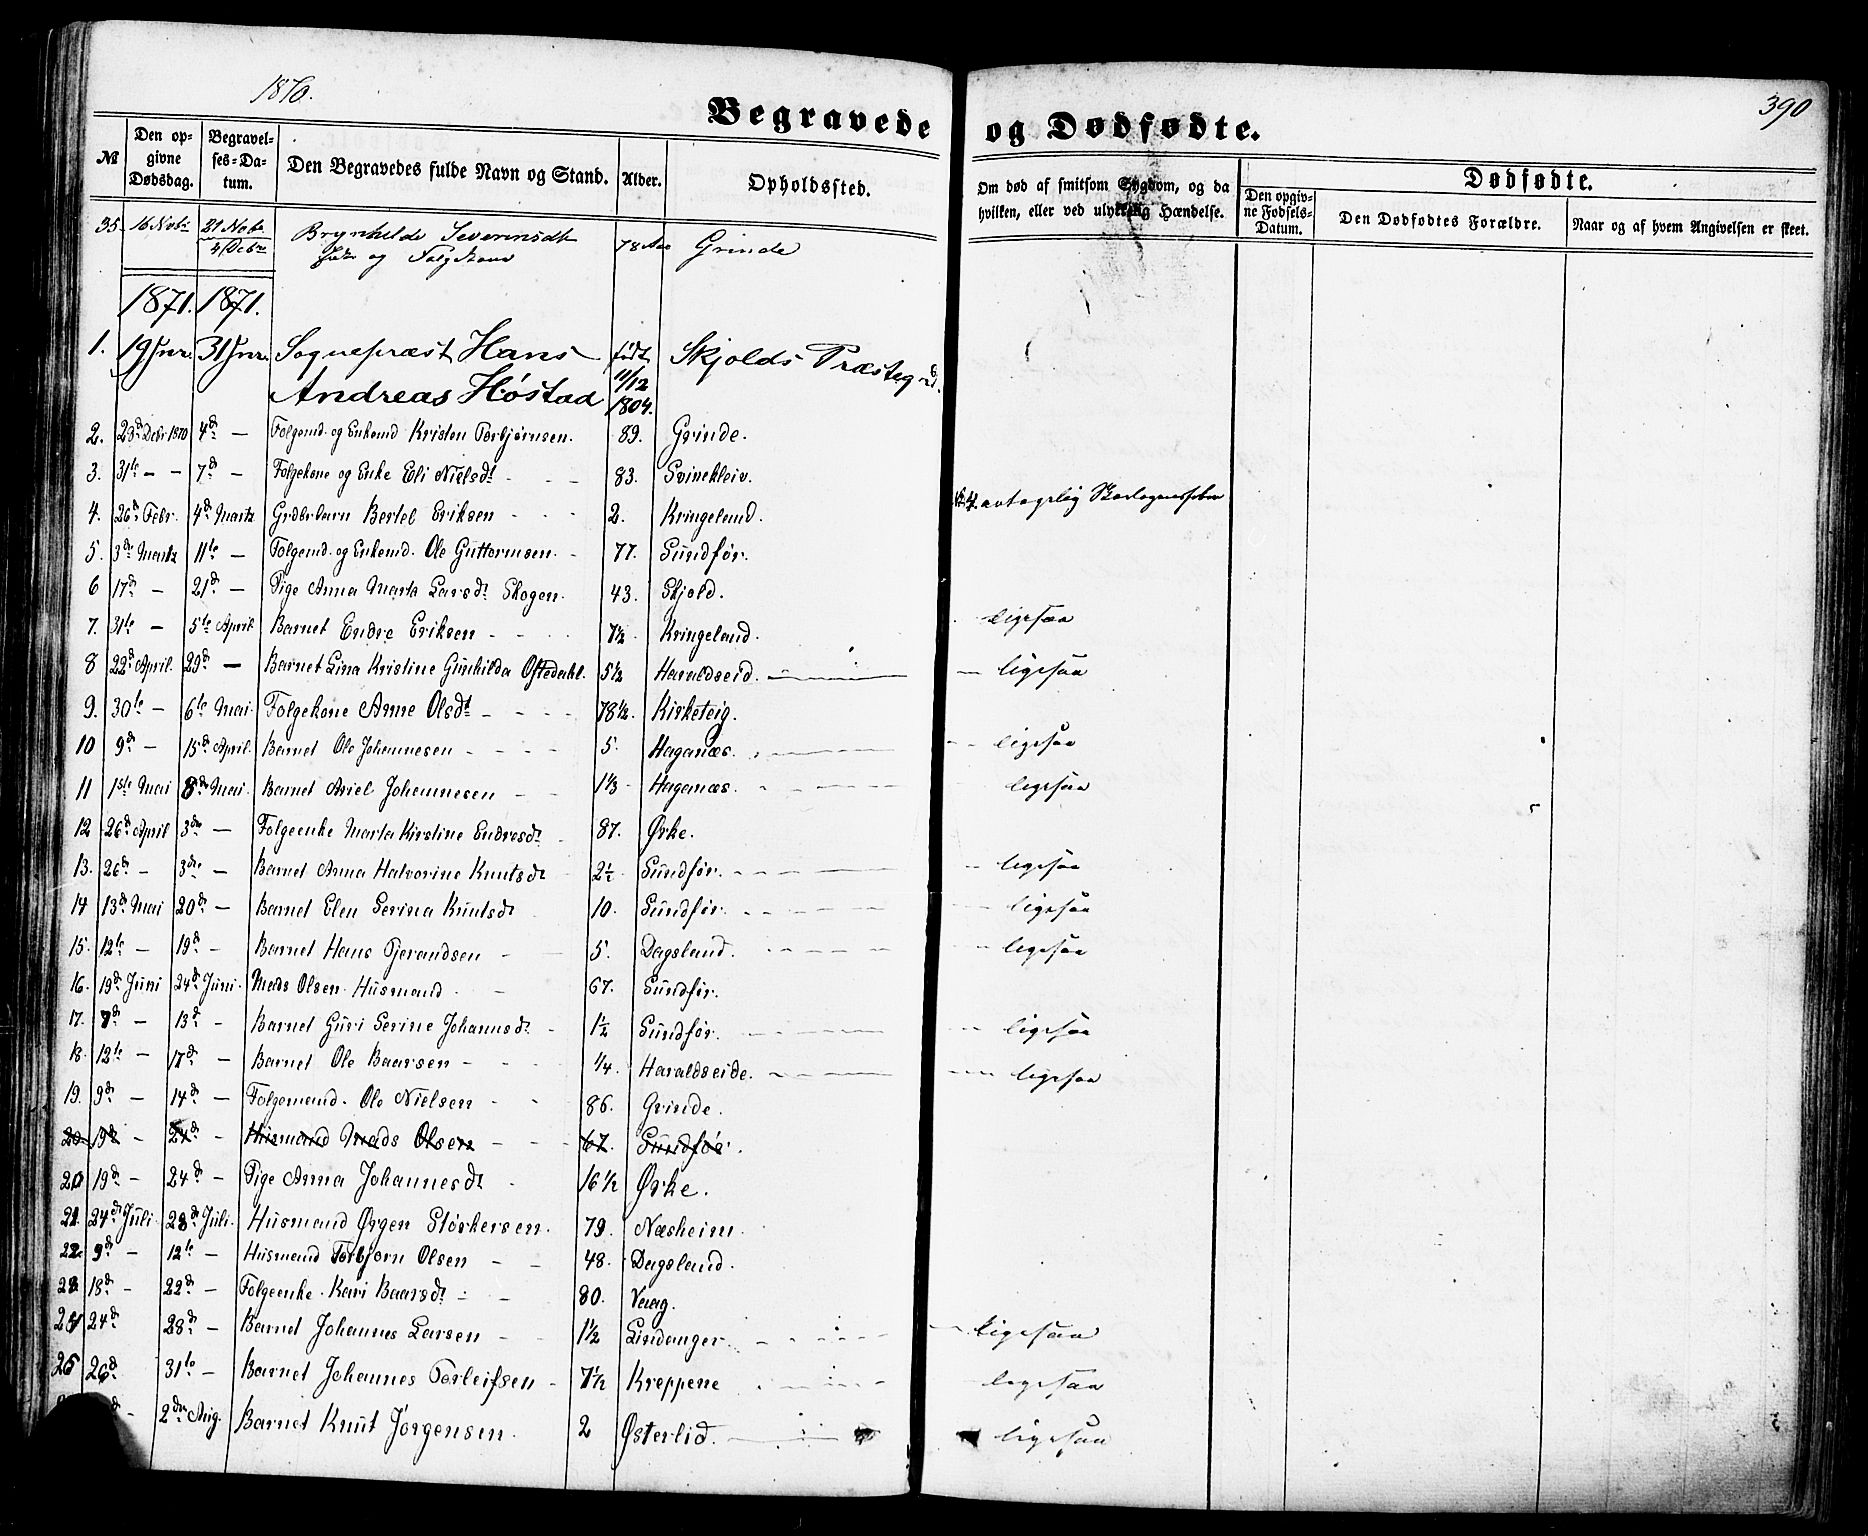 1870.
390
Begravede og Dødfødte.
№ Den opgivne Dødsdag. Begravelses-Datum. Den Begravedes fulde Navn og Stand. Alder. Opholdssted. Om død af smitsom Sygdom, og da hvilken, eller ved ulykkelig Hændelse. Dødfødte. Den opgivne Fødsels-Datum. Den Dødfødtes Forældre. Naar og af hvem Angivelsen er skeet.
35. 16 Novbr 21 Novbr Brynhilde Severinsdt 78 Aar Grinde
4 Decbr og Folgekone
1871. 1871.
1. 19 Jnr. 31 Jnr. Sognepræst Hans født Skjolds Præstegrd.
Andreas Höstad 11/12 1804.
2. 28d Decbr 1870 4d — Folgemd. og Enkemd Kristen Torbjørnsen. 89. Grinde.
3. 31te — — 7d — Folgekone og Enke Eli Nielsdt - - - 83. Svinekleiv.
4. 26d Febr. 4d Martz Grdbrbarn Bertel Eriksen - - - 2. Kringeland. Skarlagensfeber
5. 3die Martz 11te — Folgemd. og Enkemd. Ole Guttormsen. - 77. Sundfør.
6 17d — 21d — Pige Anna Marta Larsdt Skogen. 43. Skjold.
7. 31te — 5te April Barnet Endre Eriksen - - - 7½ Kringeland. ligesaa
8 22d April. 29d — Barnet Lina Kristine Gunhilda Oftedahl. 5½ Haraldseid. — ligesaa
9. 30te — 6te Mai Folgekone Anne Olsdt - - - 78½. Kirketeig.
10 9d — 15d April. Barnet Ole Johannesen - - - 5. Haganæs. — ligesaa
11 1ste Mai 8de Mai. Barnet Ariel Johannesen - - 1⅓ Haganæs. — ligesaa
12 26d April 3die — Folgeenke Marta Kirstine Endresdt - 87. Ørke.
13. 26d — 3die — Barnet Anna Halvorine Knutsdt 2½ Sundfør. — ligesaa
14 13d Mai 20d — Barnet Elen Serina Knutsdt 10. Sundfør. — ligesaa
15. 12te — 19d — Barnet Hans Tjerandsen - 5. Dagsland. — ligesaa
16. 19d Juni 24d Juni. Mads Olsen Husmand. - 67. Sundfør.
17. 7d — 13d - Barnet Guri Serine Johannsdt - 1½ Sundfør. — ligesaa
18. 12te — 17d — Barnet Ole Baarsen - - - ¼ Haraldseide. — ligesaa
19. 9d — 14d — Folgemand. Ole Nielsen - - 86. Grinde.
20 19d - 24d - Husmand Mads Olsen - - - 67. Sundfør.
20 19d - 24d - Pige Anna Johannesdt - 16½ Ørke.
21. 24d Juli. 28d Juli. Husmand Ørgen Störkersen. 79. Næsheim.
22. 9d - 12te - Husmand Torbjørn Olsen - - 48. Dagsland.
23 18d - 22d - Folgeenke. Kari Baarsdt - - 80. Vaag.
24 24d 28d - Barnet Johannes Larsen - - 1½ Lindanger. — ligesaa
25 26d 31te - Barnet Johannes Torleifsen - 7½ Kreppene — ligesaa
d - 2den Aug. Barnet Knut Jörgensen. 2 Østerlid. — ligesaa